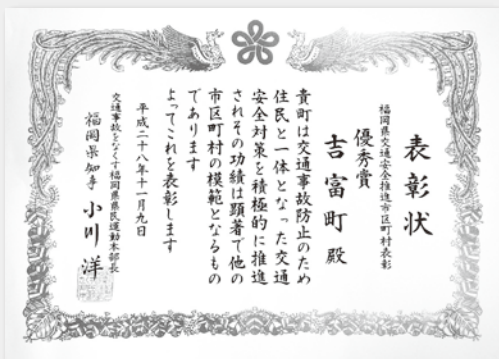 表彰状
福岡県交通安全推進市区町村表彰
優秀賞
吉富町 殿
貴町は交通事故防止のため
住民と一体となった交通
安全対策を積極的に推進
されその功績は顕著で他の
市区町村の模範となるもの
であります
よってこれを表彰します
平成二十八年十一月九日
交通事故をなくす福岡県県民運動本部長
福岡県知事 小川 洋